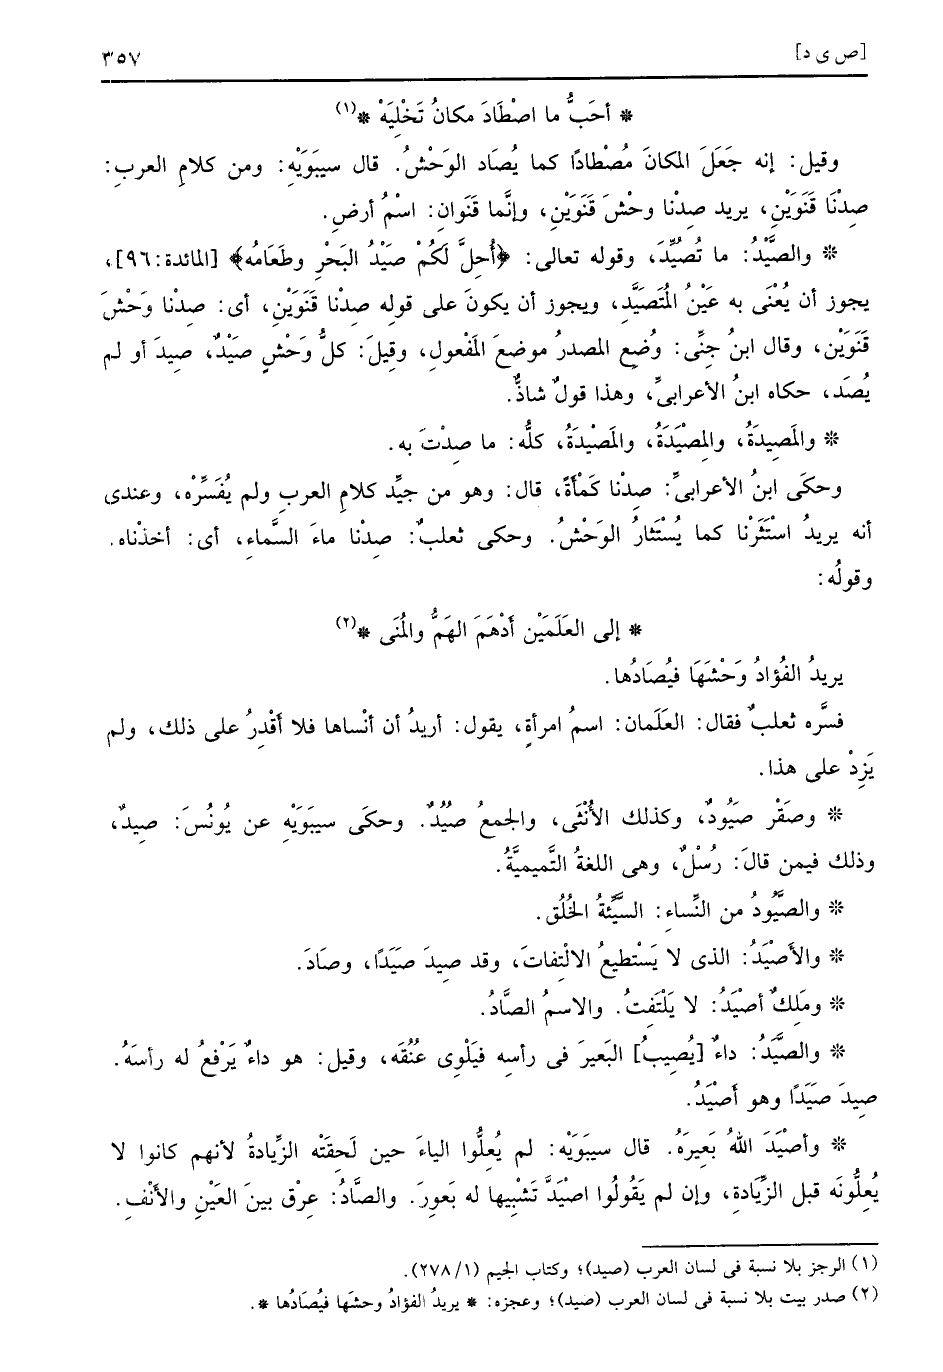 [ص ى د] ٣٥٧
* أحَبُّ ما اصْطَادَ مكانُ تَخْلِيَهْ *(١)
وقيل: إنه جَعَلَ المكانَ مُصْطادًا كما يُصَاد الوَحْشُ. قال سيبَوَيْهِ: ومن كلامِ العربِ:
صِدْنَا قَنَوَيْنِ، يريد صِدْنا وحْشَ قَنَوَيْنِ، وإنَّما قَنَوان: اسْمُ أرضٍ.
* والصَّيْدُ: ما تُصُيِّدَ، وقوله تعالى: ﴿أُحلَّ لَكُمْ صَيْدُ البَحْرِ وطَعَامُه﴾ [المائدة:٩٦]،
يجوز أن يُعْنَى به عَيْنُ المُتَصَيَّد، ويجوز أن يكونَ على قوله صِدْنا قَنَوَيْنِ، أى: صدْنا وَحْشَ
قَنَوَيْن، وقال ابنُ جنِّى: وُضِع المصدرُ موضعَ المَفْعولِ، وقيلَ: كلُّ وَحْشٍ صَيْدٌ، صِيدَ أو لم
يُصَد، حكاه ابنُ الأعرابىِّ، وهذا قولٌ شاذٌّ.
* والمَصِيدَةُ، والمِصْيَدَةُ، والمَصْيَدَةُ، كلُّه: ما صِدْتَ به.
وحكَى ابنُ الأعرابىِّ: صِدْنا كَمْأَةً، قال: وهو من جيِّد كلامِ العربِ ولم يُفَسِّرْه، وعندى
أنه يريدُ اسْتَثَرْنا كما يُسْتَثارُ الوَحْشُ. وحكى ثعلبٌ: صِدْنا ماءَ السَّماءِ، أى: أخذْناه.
وقولُه:
* إلى العَلَمَيْن أَدْهَمَ الهَمُّ والمُنَى *(٢)
يريدُ الفُؤادُ وَحْشَهَا فيُصَادُها.
فسَّره ثعلبٌ فقال: العَلَمان: اسمُ امرأةٍ، يقول: أريدُ أن أنْساها فلا أقْدِرُ على ذلك، ولم
يَزِدْ على هذا.
* وصَقْر صَيُودٌ، وكذلك الأُنْثَى، والجمعُ صُيُدٌ. وحكَى سيبَوَيْهِ عن يُونُسَ: صِيدٌ،
وذلك فيمن قالَ: رُسْلٌ، وهى اللغةُ التَّميميَّةُ.
* والصَّيُّودُ من النِّساءِ: السَّيِّئةُ الخُلُق.
* والأَصْيَدُ: الذى لا يَسْتطيعُ الالْتفاتَ، وقد صِيدَ صَيَدًا، وصَادَ.
* ومَلِكٌ أصْيَدُ: لا يَلْتَفتُ. والاسمُ الصَّادُ.
* والصَّيَدُ: داءٌ [يُصِيبُ] البَعيرَ فى رأسه فيَلْوِى عُنُقَه، وقيل: هو داءٌ يَرْفعُ له رأسَهُ.
صِيدَ صَيَدًا وهو أَصْيَدُ.
* وأصْيَدَ اللهُ بَعِيرَهُ. قال سيبَوَيْه: لم يُعِلُّوا الياءَ حين لَحِقَتْه الزِّيادةُ لأنهم كانوا لا
يُعِلُّونَه قبل الزِّيَادةِ، وإن لم يَقُولُوا اصْيَدَّ تَشْبِيها له بَعورَ. والصَّادُ: عِرْق بينَ العَيْنِ والأنْفِ.
(١) الرجز بلا نسبة فى لسان العرب (صيد)؛ وكتاب الجيم (٢٧٨/١).
(٢) صدر بيت بلا نسبة فى لسان العرب (صيد)؛ وعجزه: * يريدُ الفؤادُ وحشَها فيُصَادُها *.